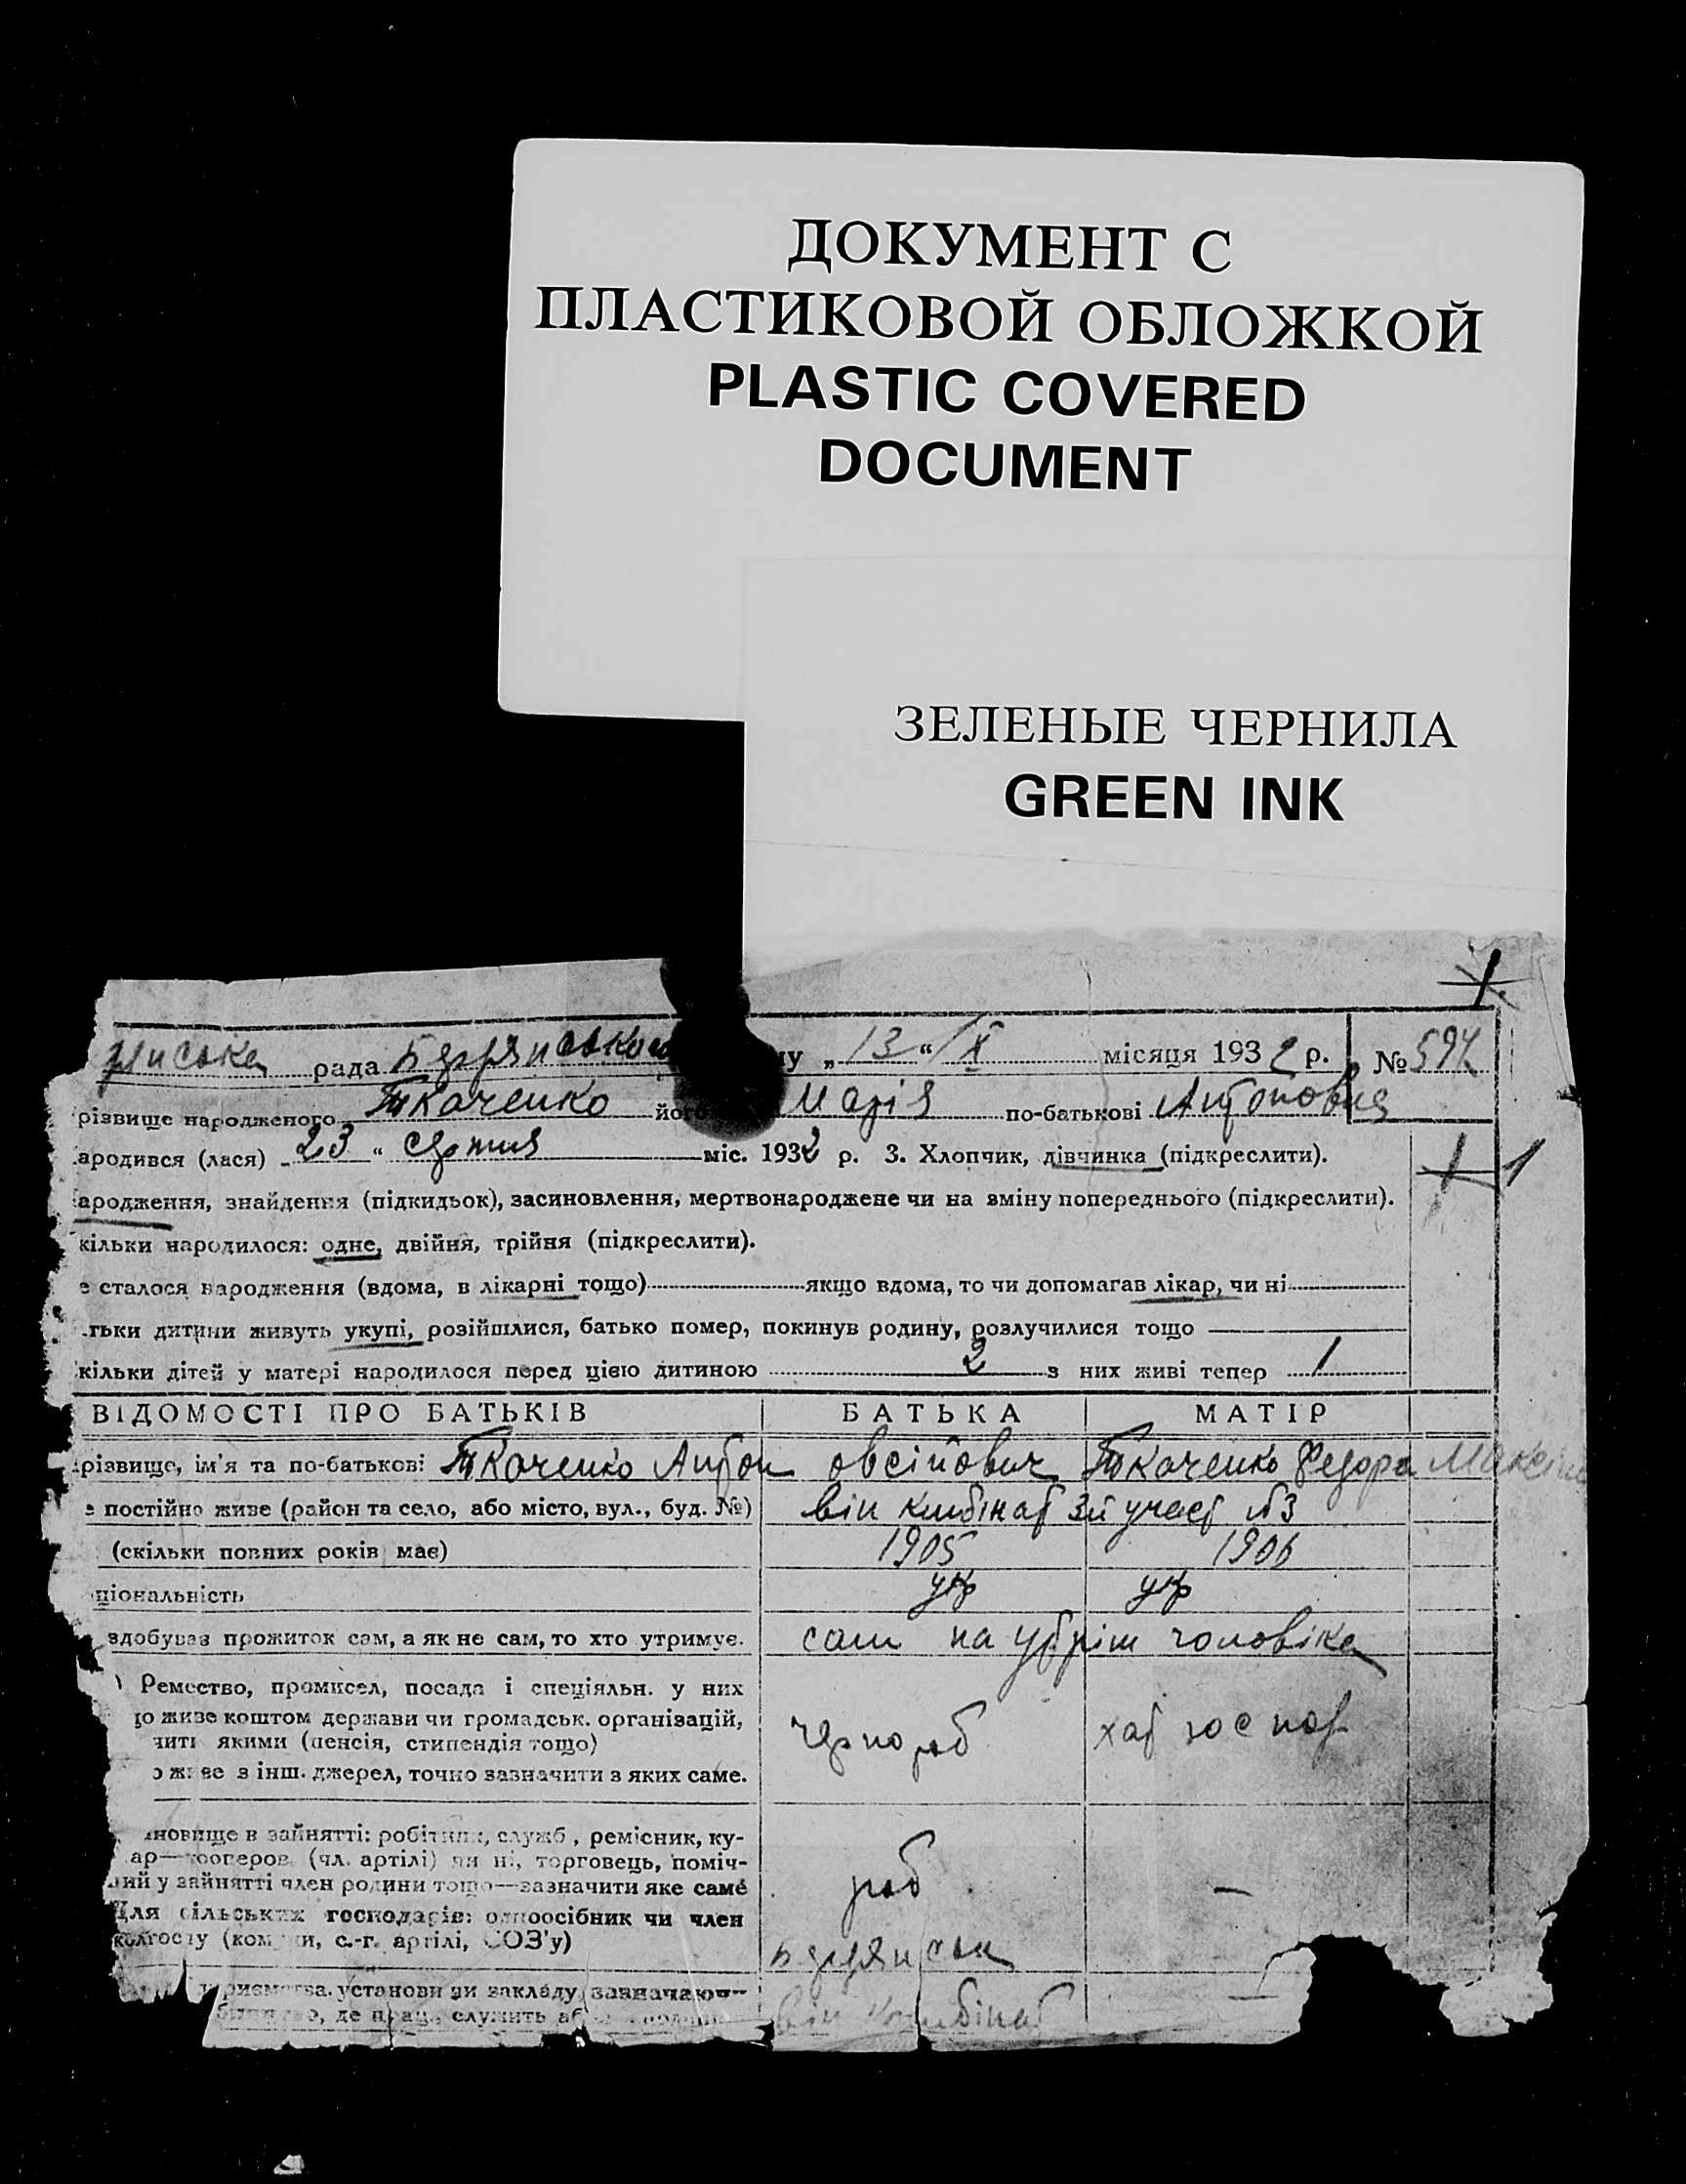 ДОКУМЕНТ С
ПЛАСТИКОВОЙ ОБЛОЖКОЙ
PLASTIC COVERED
DOCUMENT
ЗЕЛЕНЫЕ ЧЕРНИЛА
GREEN INK
рада му „ 13 “ X місяця 1932 р. №
різвище народженого Ткаченко його Марія по-батькові Антоновна
ародився (лася) 23 “ серпня міс. 1932 р. 3. Хлопчик, дівчинка (підкреслити).
ародження, знайдення (підкидьок), засиновлення, мертвонароджене чи на зміну попереднього (підкреслити).
кільки народилося: одне, двійня, трійня (підкреслити).
е сталося народження (вдома, в лікарні тощо) якщо вдома, то чи допомагав лікар, чи ні
тьки дитини живуть укупі, розійшлися, батько помер, покинув родину, розлучилися тощо
кільки дітей у матері народилося перед цією дитиною 2 з них живі тепер 1
ВІДОМОСТІ ПРО БАТЬКІВ БАТЬКА МАТІР
різвище, ім'я та по-батькові Ткаченко Антон Овсійович Ткаченко Федора Максім
е постійно живе (район та село, або місто, вул., буд. №) він 3й участ №3
(скільки повних років має) 1905 1906
ціональність укр укр
здобував прожиток сам, а як не сам, то хто утримує. сам на утрім чоловіка
) Ремество, промисел, посада і спеціяльн. у них
о живе коштом держави чи громадськ. організацій,
чити якими (пенсія, стипендія тощо) чернороб хат госпор
о живе з інш. джерел, точно зазначити з яких саме.
новище в зайнятті: робітник, служб., ремісник, ку-
ар—кооперов. (чл. артілі) чи ні, торговець, поміч-
ний у зайнятті член родини тощо—зазначити яке саме роб —
Для сільських господарів: одноосібник чи член
колгоспу (комуни, с.-г. артілі, СОЗ'у)
установи чи закладу зазначаючи
де служить